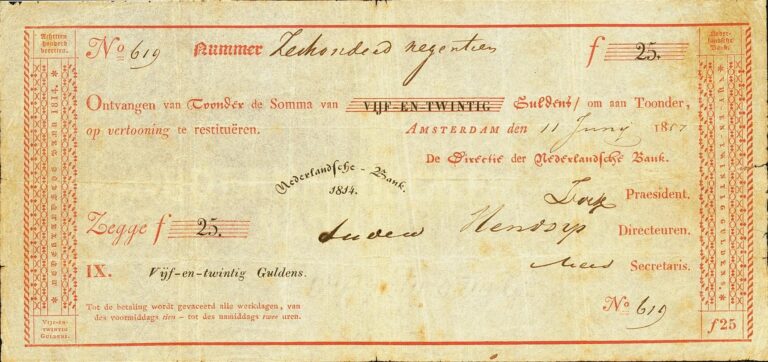 Achttien
honderd
veertien.
Neder-
landsche
Bank.
No 619 Nummer Zeshonderd negentien f 25.
Ontvangen van Toonder de Somma van VIJF-EN-TWINTIG Guldens/ om aan Toonder,
op vertooning te restituëren. AMSTERDAM den 11 Juny 18
De Directie der Nederlandsche Bank.
Nederlandsche - Bank.
1814.
Praesident.
Zegge f 25.
Directeuren.
IX. Vijf-en-twintig Guldens.
Secretaris.
Tot de betaling wordt gevaceerd alle werkdagen, van
des voormiddags tien - tot des namiddags twee uren.
No 619
VIJF-EN-
TWINTIG
GULDENS.
f 25